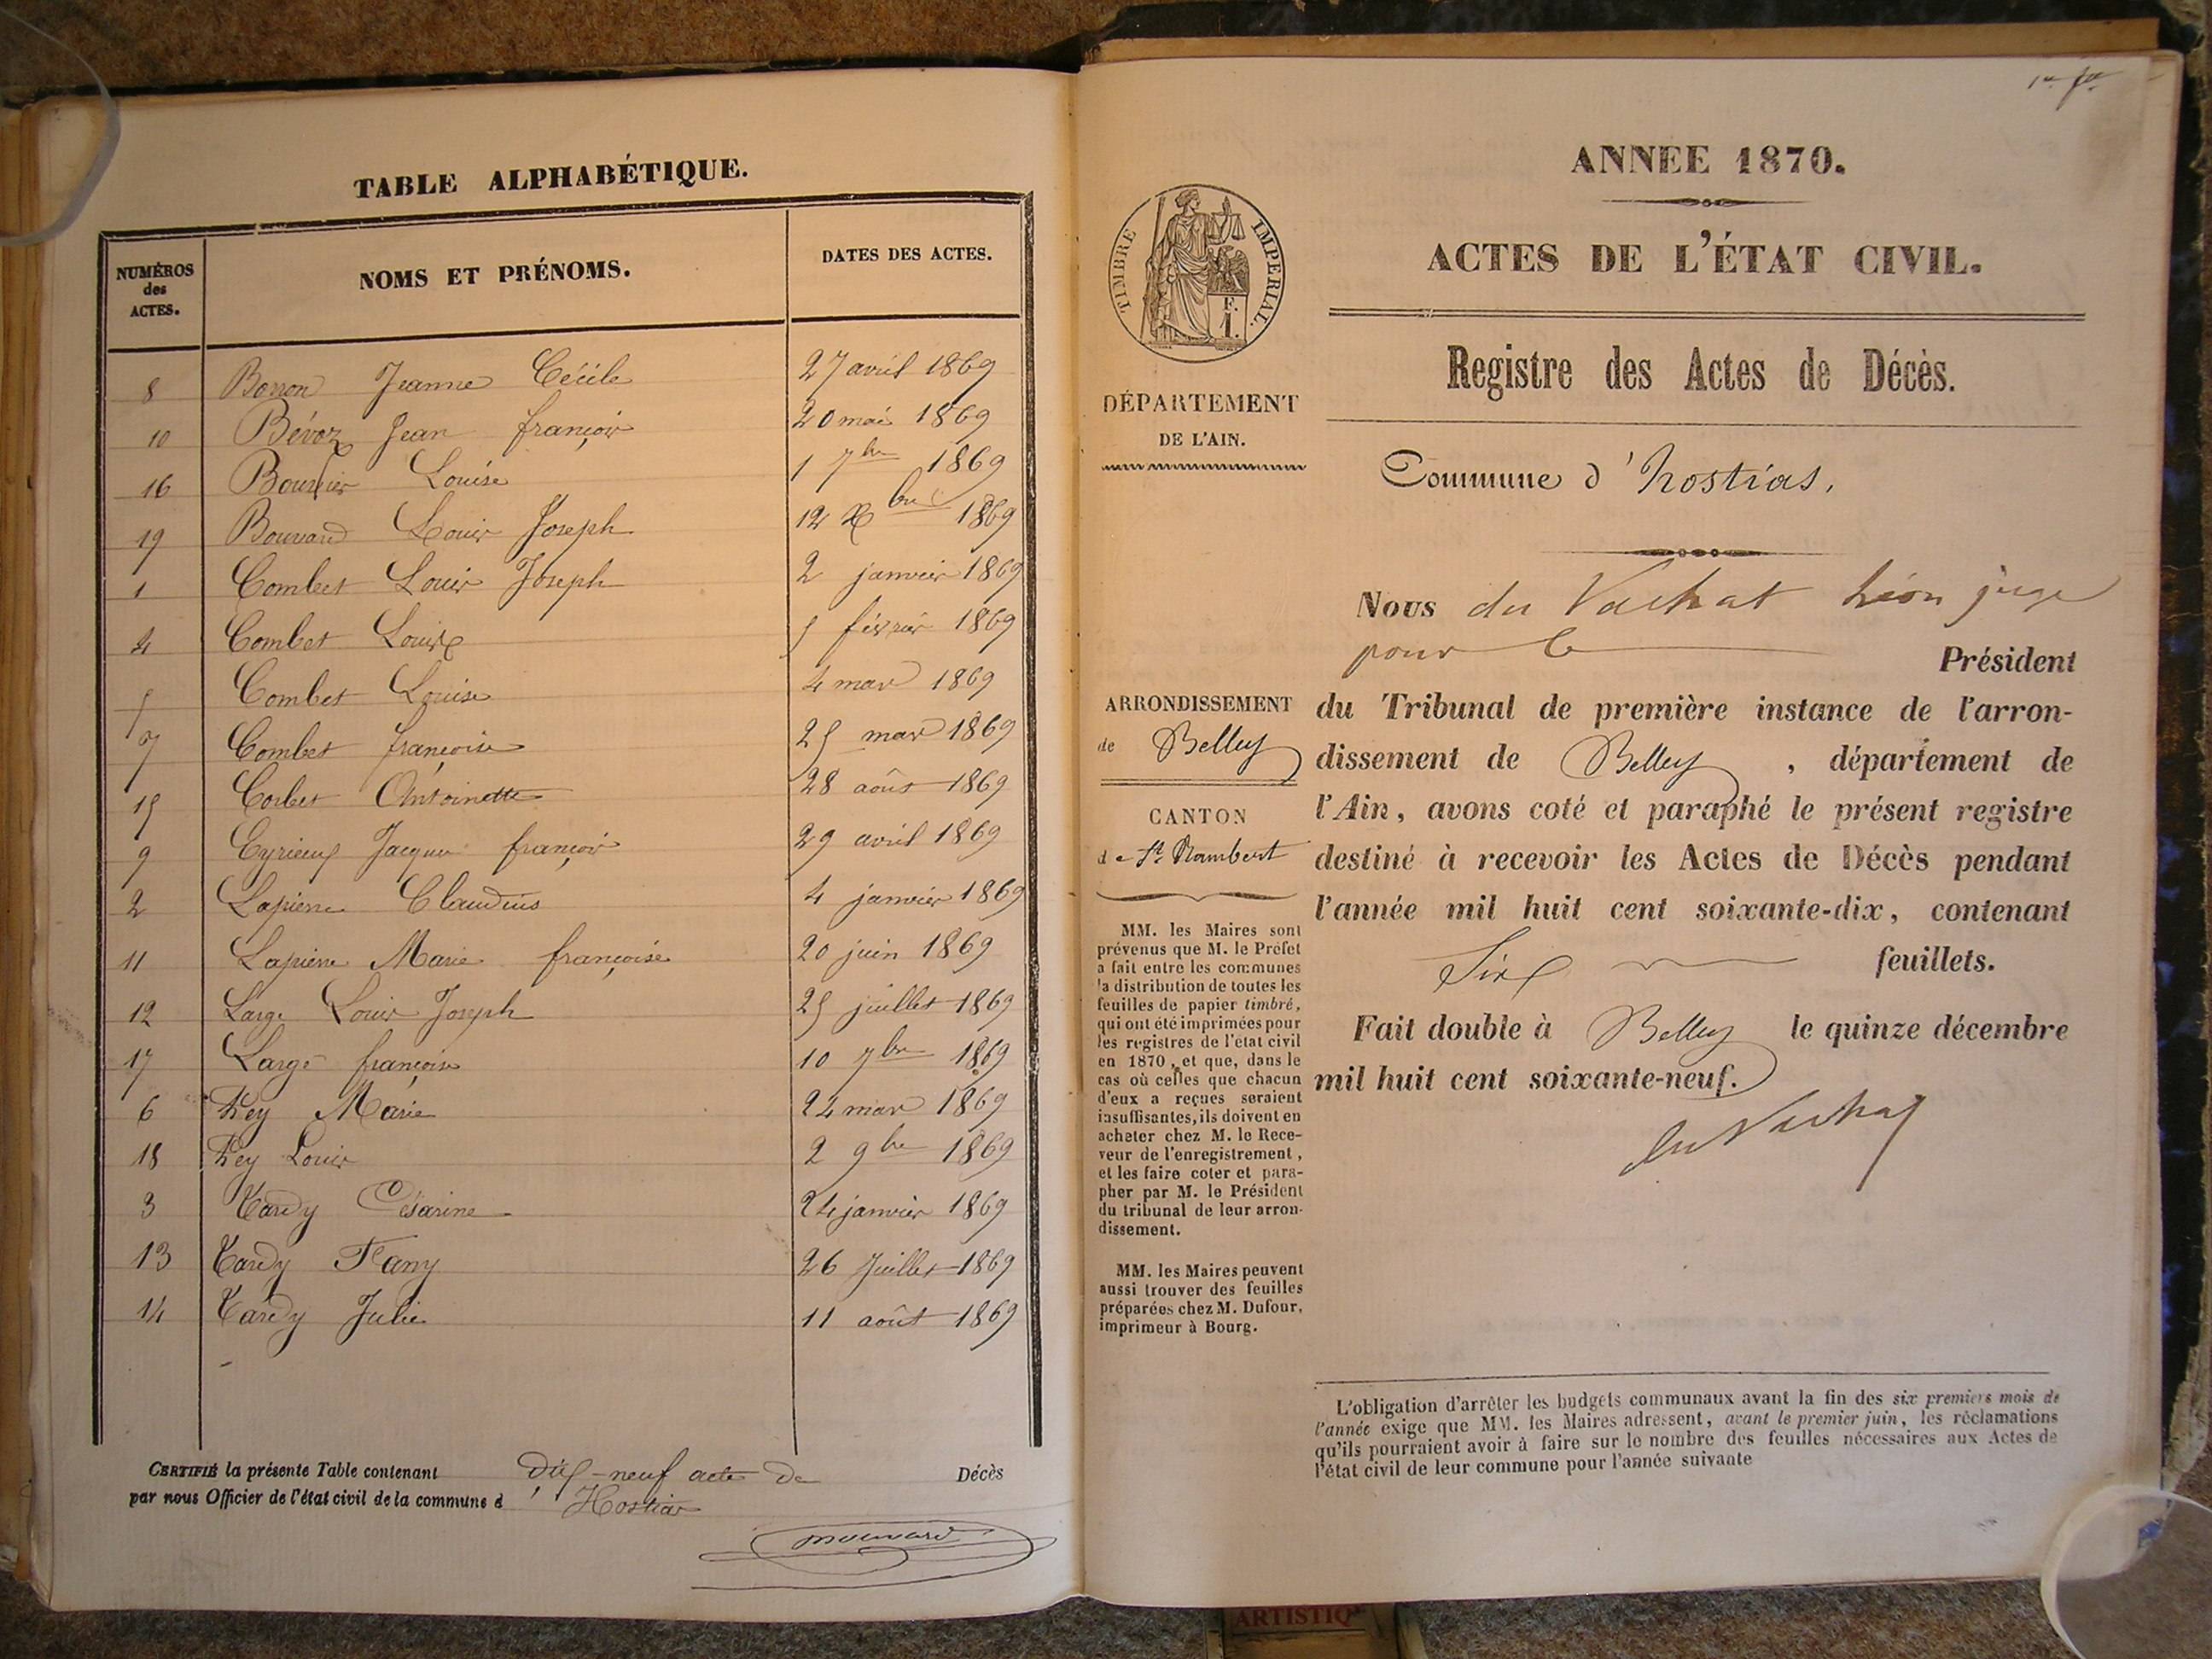 TABLE ALPHABÉTIQUE.
NUMÉROS des ACTES. NOMS ET PRÉNOMS. DATES DES ACTES.
8 Borron Jeanne Cécile 27 avril 1869
10 Bévoz Jean françois 20 mai 1869
16 Louise 1 7bre 1869
19 Bouvard Louis Joseph 12 Xbre 1869
1 Combet Louis Joseph 2 janvier 1869
4 Combet Louise 5 février 1869
5 Combet Louise 4 mars 1869
7 Combet françoise 25 mars 1869
15 Corbet Antoinette 28 août 1869
9 Eyrieux Jacques françois 29 avril 1869
2 Lapierre Claudius 4 janvier 1869
11 Lapierre Marie françoise 20 juin 1869
12 Large Louis Joseph 25 juillet 1869
17 Large françoise 10 7bre 1869
6 Rey Marie 24 mars 1869
18 Rey Louis 2 9bre 1869
3 Tardy Césarine 24 janvier 1869
13 Tardy Fany 26 Juillet 1869
14 Tardy Julie 11 août 1869
CERTIFIÉ la présente Table contenant Dix-neuf actes de Décès
par nous Officier de l'état civil de la commune d Hostias
1er ft
ANNÉE 1870.
ACTES DE L'ÉTAT CIVIL.
Registre des Actes de Décès.
Commune d'hostias,
TIMBRE IMPERIAL.
F.
1.
DÉPARTEMENT
DE L'AIN.
ARRONDISSEMENT
de Belley
CANTON
de St Rambert
MM. les Maires sont
prévenus que M. le Préfet
a fait entre les communes
la distribution de toutes les
feuilles de papier timbré,
qui ont été imprimées pour
les registres de l'état civil
en 1870, et que, dans le
cas où celles que chacun
d'eux a reçues seraient
insuffisantes, ils doivent en
acheter chez M. le Rece-
veur de l'enregistrement,
et les faire coter et para-
pher par M. le Président
du tribunal de leur arron-
dissement.
MM. les Maires peuvent
aussi trouver des feuilles
préparées chez M. Dufour,
imprimeur à Bourg.
Nous du Vachat Léon juge
pour le Président
du Tribunal de première instance de l'arron-
dissement de Belley, département de
l'Ain, avons coté et paraphé le présent registre
destiné à recevoir les Actes de Décès pendant
l'année mil huit cent soixante-dix, contenant
Six feuillets.
Fait double à Belley le quinze décembre
mil huit cent soixante-neuf.
du Vachat
L'obligation d'arrêter les budgets communaux avant la fin des six premiers mois de
l'année exige que MM. les Maires adressent, avant le premier juin, les réclamations
qu'ils pourraient avoir à faire sur le nombre des feuilles nécessaires aux Actes de
l'état civil de leur commune pour l'année suivante
ARTISTIQ